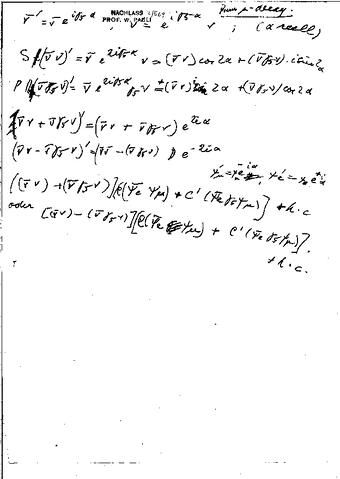 μ-decay.
NACHLASS
PROF. W. PAULI
ν̄' = ν̄ e^{iγ5 α}, ν' = e^{iγ5 α} ν ; (α reell)
S (ν̄ ν)' = ν̄ e^{2iγ5 α} ν = (ν̄ ν) cos 2α + (ν̄ γ5 ν) · i sin 2α
P (ν̄ γ5 ν)' = ν̄ e^{2iγ5 α} γ5 ν = + (ν̄ ν) i sin 2α + (ν̄ γ5 ν) cos 2α
(ν̄ ν + ν̄ γ5 ν)' = (ν̄ ν + ν̄ γ5 ν) e^{2iα}
(ν̄ ν − ν̄ γ5 ν)' = (ν̄ ν − (ν̄ γ5 ν) ) e^{−2iα}
[(ν̄ ν) + (ν̄ γ5 ν)] [C (ψ̄e ψμ) + C' (ψ̄e γ5 ψμ)] + h.c
oder [(ν̄ ν) − (ν̄ γ5 ν)] [C (ψ̄e ψμ) + C' (ψ̄e γ5 ψμ)].
+ h.c.